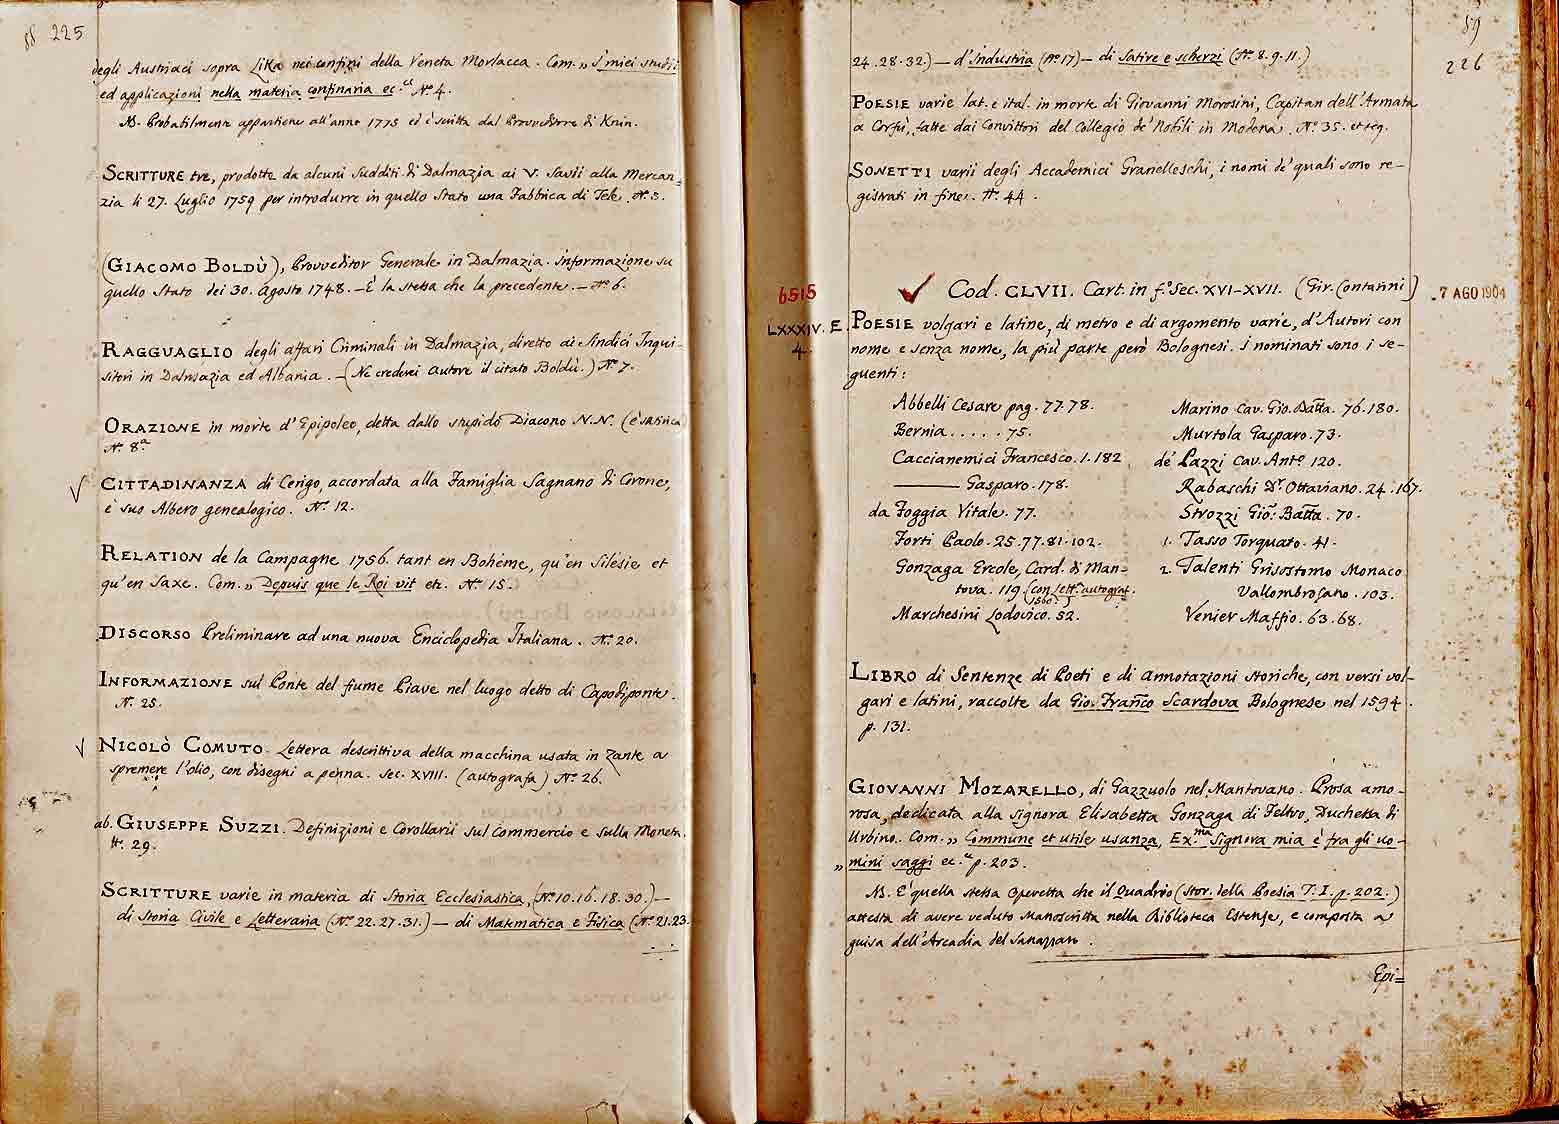 88 225
degli Austriaci sopra Lika nei confini della Veneta Morlacca. Com. „ I miei studii
ed applicazioni nella materia confinaria ec.ª Nº 4.
NB. Probabilmente appartiene all'anno 1775 ed è scritta dal Provveditore di Knin.
SCRITTURE tre, prodotte da alcuni sudditi di Dalmazia ai V. Savii alla Mercan=
zia li 27. Luglio 1759 per introdurre in quello Stato una Fabbrica di Tele. Nº 5.
(GIACOMO BOLDÙ), Provveditor Generale in Dalmazia. Informazione su
quello Stato dei 30. Agosto 1748. – È la stessa che la precedente. – Nº 6.
RAGGUAGLIO degli affari Criminali in Dalmazia, diretto ai Sindici Inqui-
sitori in Dalmazia ed Albania. – (Ne crederei autore il citato Boldù.) Nº 7.
ORAZIONE in morte d'Epipoleo, detta dallo stupido Diacono N.N. (è satirica)
Nº 8ª
CITTADINANZA di Cerigo, accordata alla Famiglia Sagnano di Corone,
e suo Albero genealogico. Nº 12.
RELATION de la Campagne 1756. tant en Bohème, qu'en Silésie et
qu'en Saxe. Com. „ Depuis que le Roi vit etc. Nº 15.
DISCORSO Preliminare ad una nuova Enciclopedia Italiana. Nº 20.
INFORMAZIONE sul Ponte del fiume Piave nel luogo detto di Capodiponte.
Nº 25.
NICOLÒ COMUTO. Lettera descrittiva della macchina usata in Zante a
spremere l'olio, con disegni a penna. Sec. XVIII. (autografa) Nº 26.
ab. GIUSEPPE SUZZI. Definizioni e Corollarii sul Commercio e sulla Moneta.
Nº 29.
SCRITTURE varie in materia di Storia Ecclesiastica, (Nº 10. 16. 18. 30.) –
di Storia Civile e Letteraria (Nº 22. 27. 31.) – di Matematica e Fisica (Nº 21. 23.
89
226
24. 28. 32.) – d'Industria (Nº 17) – di Satire e scherzi (Nº 8. 9. 11.)
POESIE varie lat. e ital. in morte di Giovanni Morosini, Capitan dell'Armata
a Corfù, fatte dai Convittori del Collegio de' Nobili in Modena. Nº 35. et seq.
SONETTI varii degli Accademici Granelleschi, i nomi de' quali sono re-
gistrati in fine. Nº 44.
6515
LXXXIV. E.
4.
Cod. CLVII. Cart. in fº Sec. XVI-XVII. (Gir. Contarini)
7 AGO 1904
POESIE volgari e latine, di metro e di argomento varie, d'Autori con
nome e senza nome, la più parte però Bolognesi. I nominati sono i se-
guenti:
Abbelli Cesare pag. 77. 78.
Bernia . . . . . 75.
Caccianemici Francesco. 1. 182
——— Gasparo. 178.
da Foggia Vitale. 77.
Forti Paolo. 25. 77. 81. 102.
Gonzaga Ercole, Card. di Man=
tova. 119. (con Lett.ª autograf.
1560.)
Marchesini Lodovico. 52.
Marino Cav. Gio. Batta. 76. 180.
Murtola Gasparo. 73.
de' Pazzi Cav. Antº 120.
Rabaschi Dr. Ottaviano. 24. 167.
Strozzi Gio. Batta. 70.
1. Tasso Torquato. 41.
2. Talenti Grisostomo Monaco
Vallombrosano. 103.
Venier Maffio. 63. 68.
LIBRO di Sentenze di Poeti e di annotazioni storiche, con versi vol-
gari e latini, raccolte da Gio. Franco Scardova Bolognese nel 1594.
p. 131.
GIOVANNI MOZARELLO, di Gazzuolo nel Mantovano. Prosa amo-
rosa, dedicata alla Signora Elisabetta Gonzaga di Feltro, Duchessa di
Urbino. Com. „ Commune et utile usanza, Ex.ma Signora mia è fra gli uo-
„ mini saggi ec.ª p. 203.
NB. E' quella stessa Operetta che il Quadrio (Stor. della Poesia T. I. p. 202.)
attesta di avere veduto Manoscritta nella Biblioteca Estense, e composta a
guisa dell'Arcadia del Sanazzaro.
Epi=